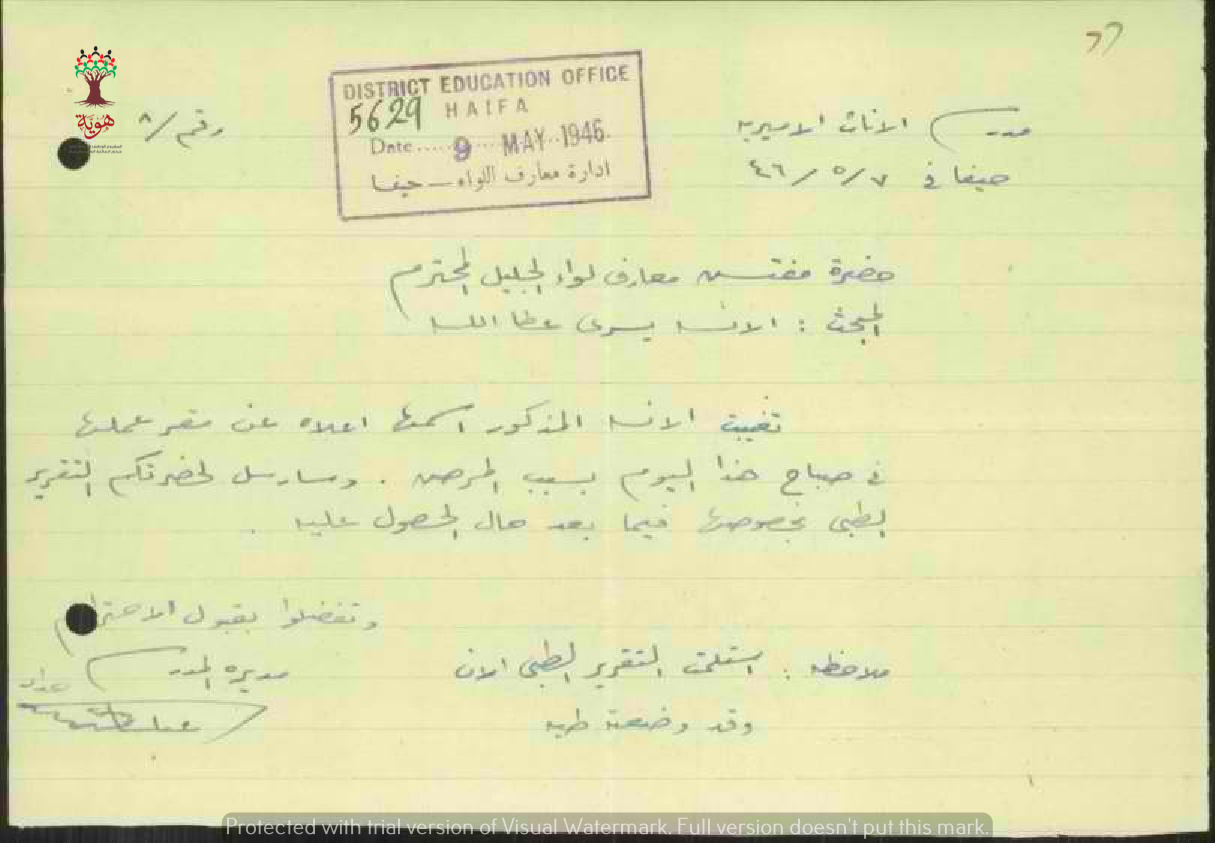 ٦٦
هوية
DISTRICT EDUCATION OFFICE
HAIFA
5629
Date..... 9 ... MAY..1946.
ادارة معارف اللواء — حيفا
مدرسة الاناث الاميرية
رقم / ٨
حيفا في ٧ / ٥ / ٤٦
حضرة مفتش معارف لواء الجليل المحترم
المبحث : الانسة يسرى عطا الله
تغيبت الانسة المذكور اسمها اعلاه عن مقر عملها
في صباح هذا اليوم بسبب المرض . وسارسل لحضرتكم التقرير
الطبي بخصوصها فيما بعد حال الحصول عليه .
وتفضلوا بقبول الاحترام
مديرة المدرسة
ملاحظة : استلمت التقرير الطبي الان
وقد وضعته طيه
Protected with trial version of Visual Watermark. Full version doesn't put this mark.